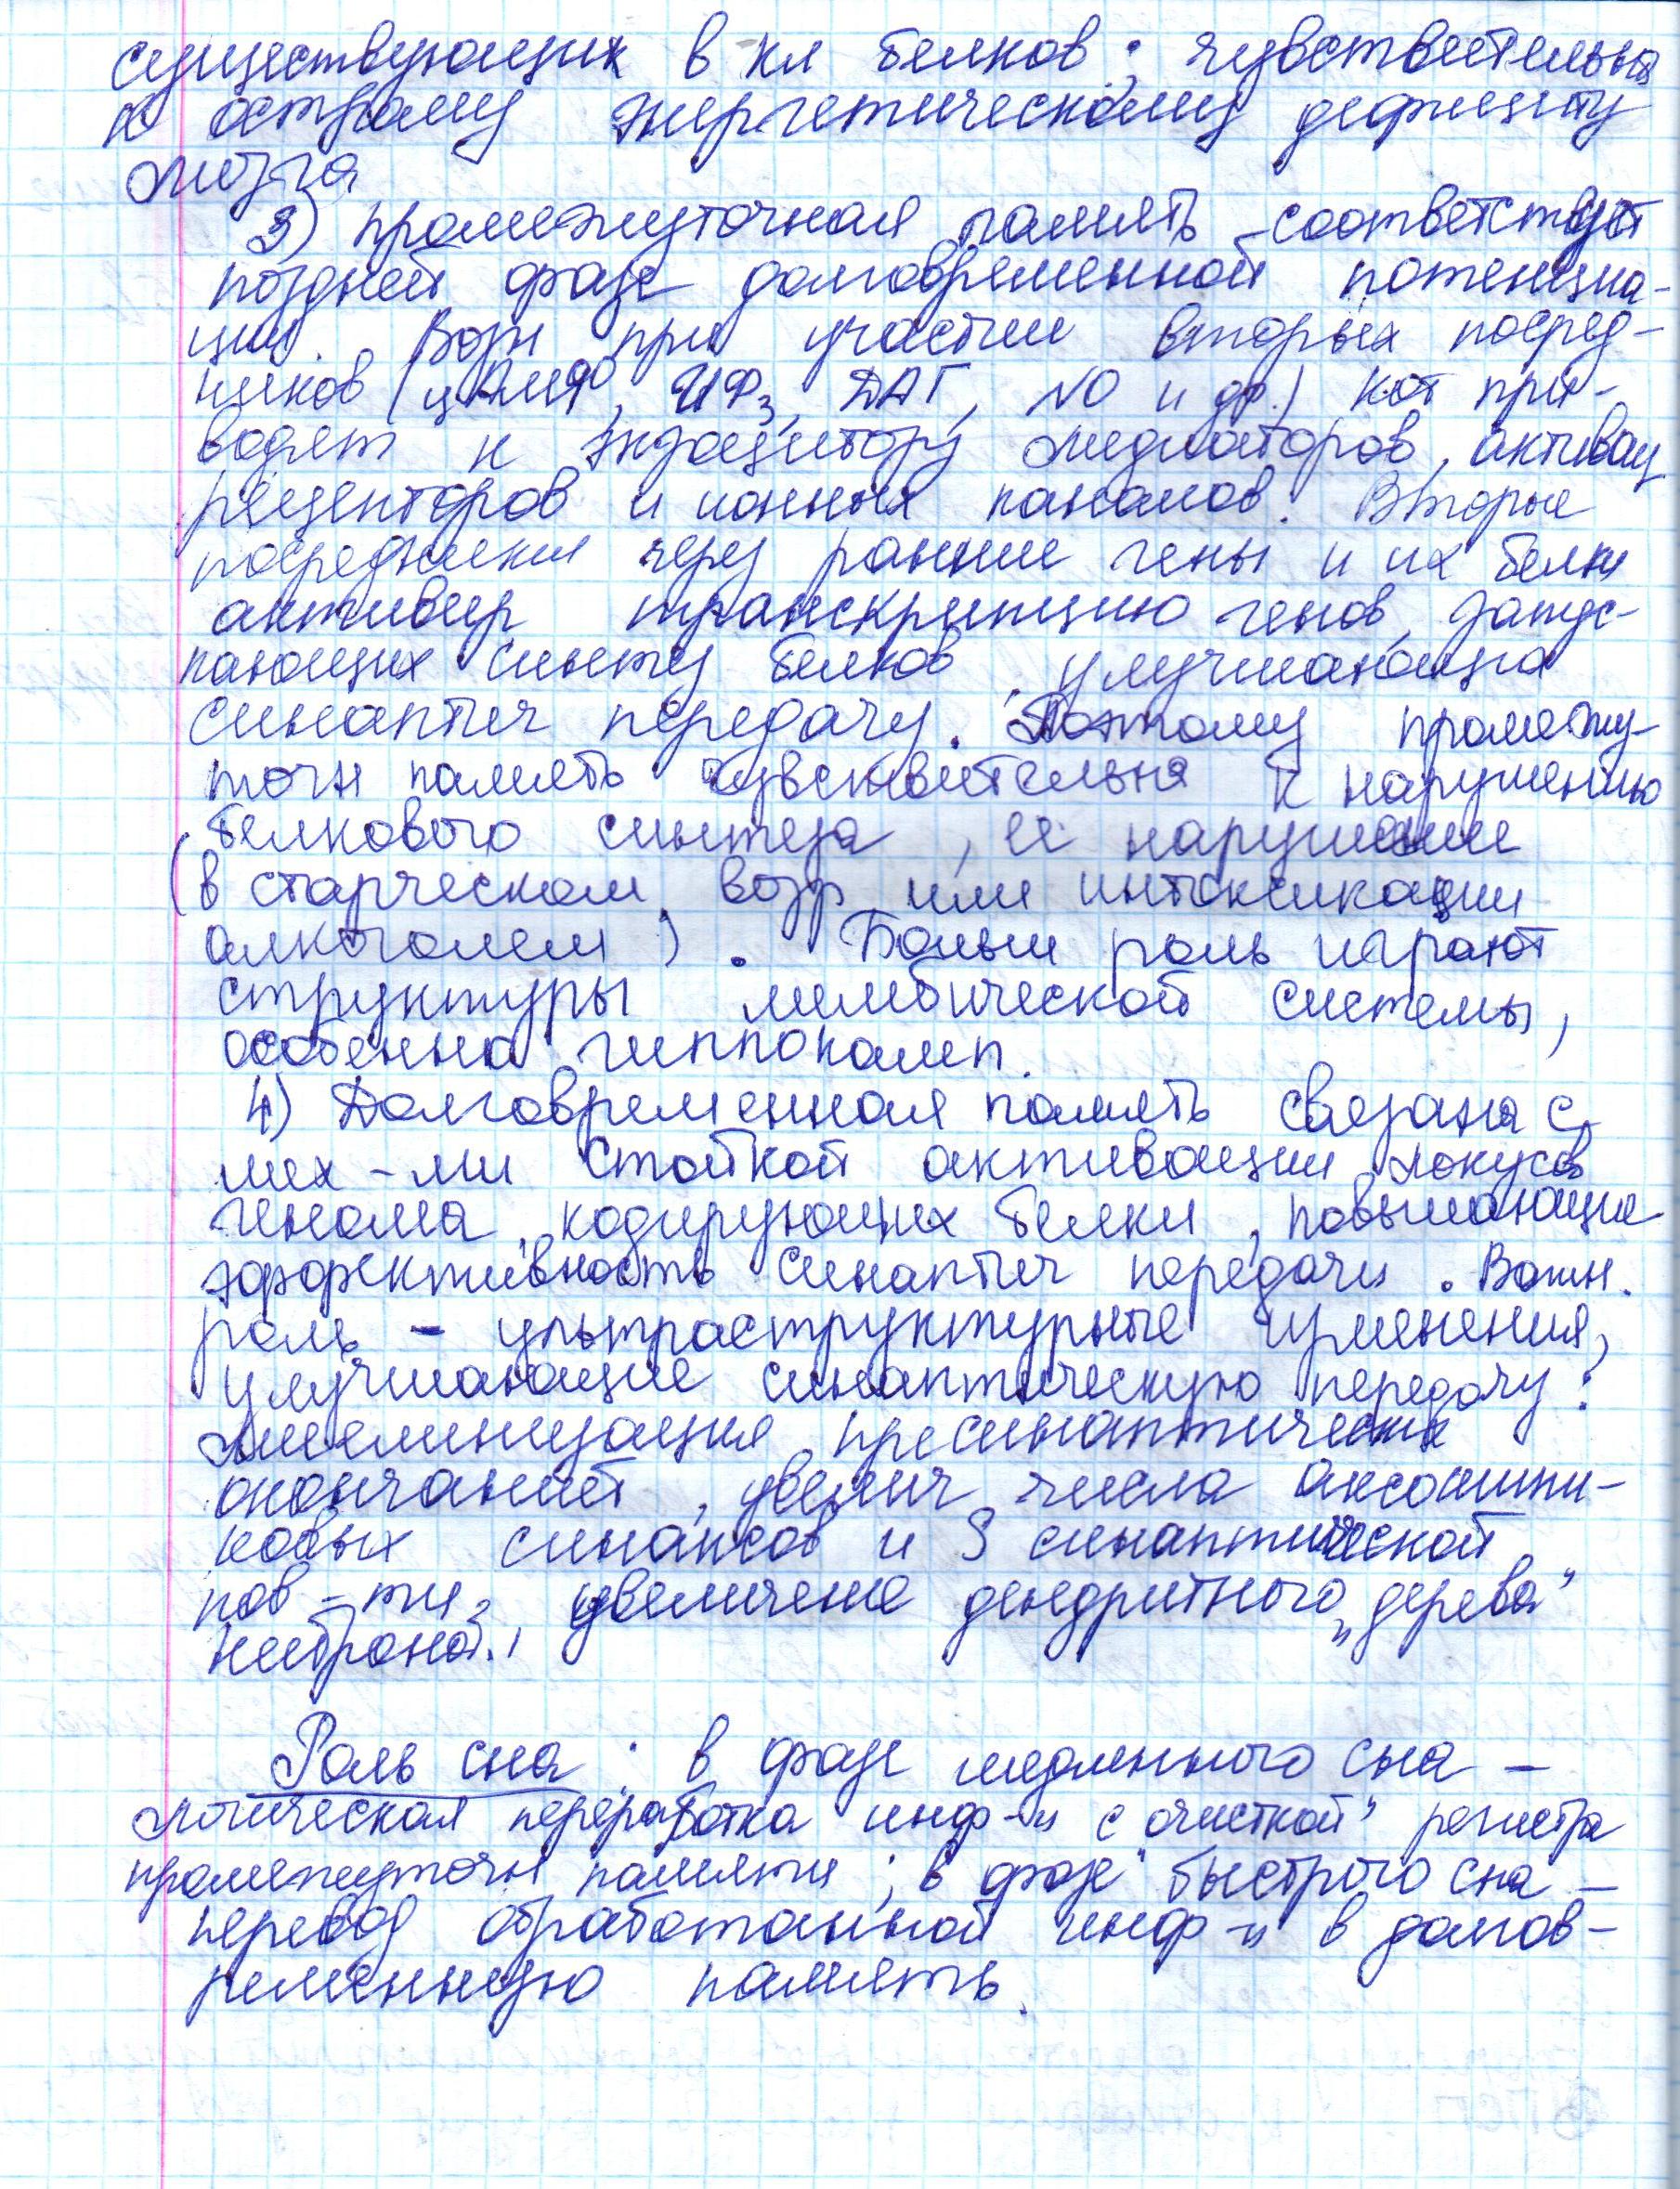 существующих в кл белков; чувствительна
к острому энергетическому дефициту
мозга
3) промежуточная память соответствует
поздней фазе долговременной потенциа-
ции. Возн при участии вторых посред-
ников (цАМФ, ИФ3, ДАГ, NO и др.) кот при-
водят к экзоцитозу медиаторов, активац
рецепторов и ионных каналов. Вторые
посредники через ранние гены и их белки
активир транскрипцию генов, запус-
кающих синтез белков, улучшающих
синаптич передачу. Поэтому промежу-
точн память чувствительна к нарушению
белкового синтеза, ее нарушение
(в старческом возр или интоксикации
алкоголем). Больш роль играют
структуры лимбической системы,
особенно гиппокамп.
4) Долговременная память связана с
мех-ми стойкой активации локусов
генома, кодирующих белки, повышающие
эффективность синаптич передачи. Важн.
роль - ультраструктурные изменения,
улучшающие синаптическую передачу:
миелинизация пресинаптических
окончаний, увелич числа аксошипи-
ковых синапсов и S синаптической
пов-ти, увеличение дендритного „дерева"
нейронов.
Роль сна: в фазе медленного сна -
логическая переработка инф-и с „очисткой" регистра
промежуточн памяти; в фазе быстрого сна -
перевод обработанной инф-и в долгов-
ременную память.